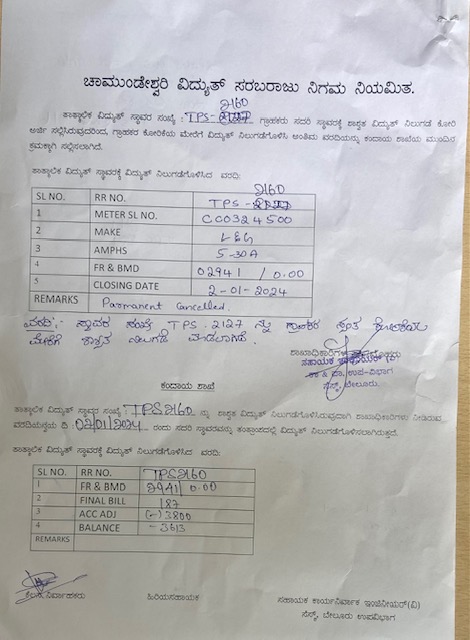 ಚಾಮುಂಡೇಶ್ವರಿ ವಿದ್ಯುತ್ ಸರಬರಾಜು ನಿಗಮ ನಿಯಮಿತ.
2160
ತಾತ್ಕಾಲಿಕ ವಿದ್ಯುತ್ ಸ್ಥಾವರ ಸಂಖ್ಯೆ :TPS-2127 ಗ್ರಾಹಕರು ಸದರಿ ಸ್ಥಾವರಕ್ಕೆ ಶಾಶ್ವತ ವಿದ್ಯುತ್ ನಿಲುಗಡೆ ಕೋರಿ
ಅರ್ಜಿ ಸಲ್ಲಿಸಿರುವುದರಿಂದ, ಗ್ರಾಹಕರ ಕೋರಿಕೆಯ ಮೇರೆಗೆ ವಿದ್ಯುತ್ ನಿಲುಗಡೆಗೊಳಿಸಿ ಅಂತಿಮ ವರದಿಯನ್ನು ಕಂದಾಯ ಶಾಖೆಯ ಮುಂದಿನ
ಕ್ರಮಕ್ಕಾಗಿ ಸಲ್ಲಿಸಲಾಗಿದೆ.
ತಾತ್ಕಾಲಿಕ ವಿದ್ಯುತ್ ಸ್ಥಾವರಕ್ಕೆ ವಿದ್ಯುತ್ ನಿಲುಗಡೆಗೊಳಿಸಿದ ವರದಿ:
2160
SL NO. RR NO. TPS-2127
1 METER SL NO. CC0324500
2 MAKE L&G
3 AMPHS 5-30A
4 FR & BMD 02941 / 0.00
5 CLOSING DATE 2-01-2024
REMARKS Parmanent Cancelled.
ವರದಿ:- ಸ್ಥಾವರ ಸಂಖ್ಯೆ TPS-2127 ನ್ನು ಗ್ರಾಹಕರ ಸ್ವಂತ ಕೋರಿಕೆಯ
ಮೇರೆಗೆ ಶಾಶ್ವತ ನಿಲುಗಡೆ ಮಾಡಲಾಗಿದೆ.
ಶಾಖಾಧಿಕಾರಿಗಳ
ಸಹಾಯಕ (ವಿ)
ಕಾ & ಪಾ ಉಪ-ವಿಭಾಗ
ಸೆಸ್ಕ್, ಬೇಲೂರು.
ಕಂದಾಯ ಶಾಖೆ
ತಾತ್ಕಾಲಿಕ ವಿದ್ಯುತ್ ಸ್ಥಾವರ ಸಂಖ್ಯೆ :TPS2160 ನ್ನು ಶಾಶ್ವತ ವಿದ್ಯುತ್ ನಿಲುಗಡೆಗೊಳಿಸಿರುವುದಾಗಿ ಶಾಖಾಧಿಕಾರಿಗಳು ನೀಡಿರುವ
ವರದಿಯನ್ವಯ ದಿ :02/01/2024 ರಂದು ಸದರಿ ಸ್ಥಾವರವನ್ನು ತಂತ್ರಾಂಶದಲ್ಲಿ ವಿದ್ಯುತ್ ನಿಲುಗಡೆಗೊಳಿಸಲಾಗಿರುತ್ತದೆ.
ತಾತ್ಕಾಲಿಕ ವಿದ್ಯುತ್ ಸ್ಥಾವರಕ್ಕೆ ವಿದ್ಯುತ್ ನಿಲುಗಡೆಗೊಳಿಸಿದ ವರದಿ:
SL NO. RR NO. TPS2160
1 FR & BMD 2941/ 0.00
2 FINAL BILL 187
3 ACC ADJ (-) 3800
4 BALANCE -3613
REMARKS
ಕೆಲಸ ನಿರ್ವಾಹಕರು ಹಿರಿಯಸಹಾಯಕ ಸಹಾಯಕ ಕಾರ್ಯನಿರ್ವಾಹಕ ಇಂಜಿನೀಯರ್(ವಿ)
ಸೆಸ್ಕ್, ಬೇಲೂರು ಉಪವಿಭಾಗ